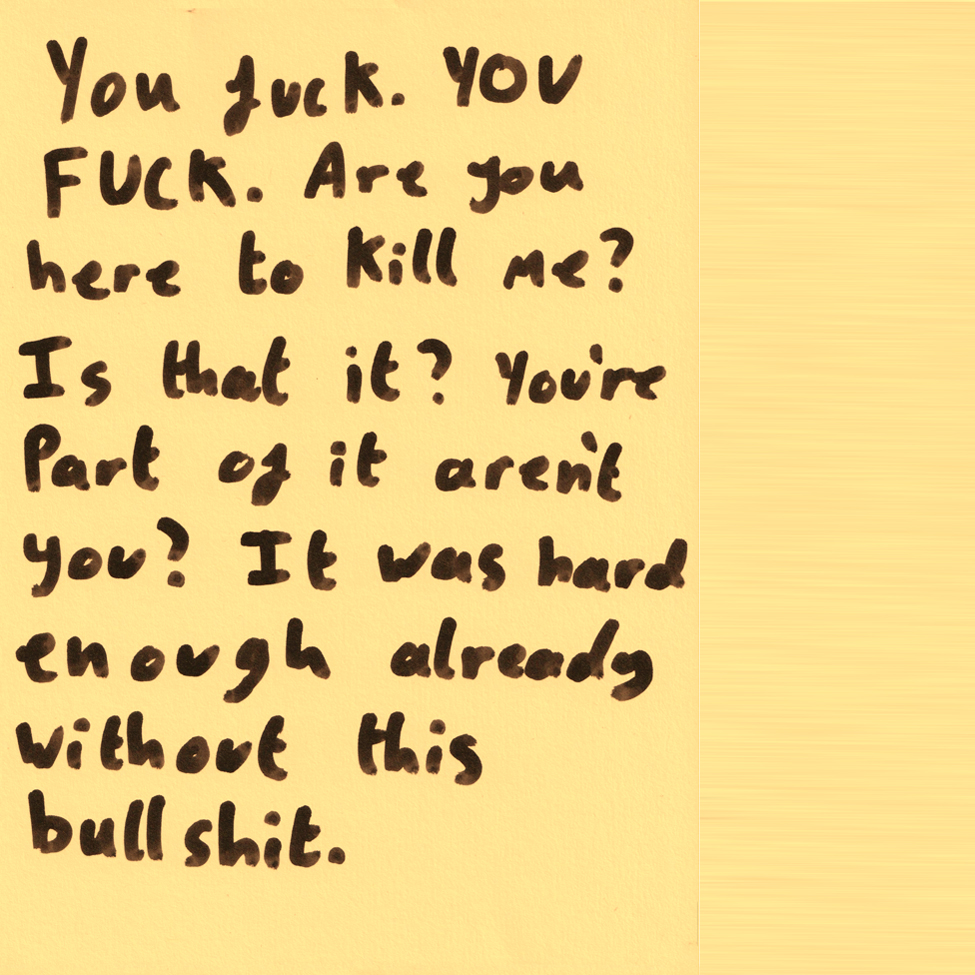 You fuck. YOU
FUCK. Are you
here to kill me?
Is that it? You're
Part of it aren't
you? It was hard
enough already
without this
bullshit.